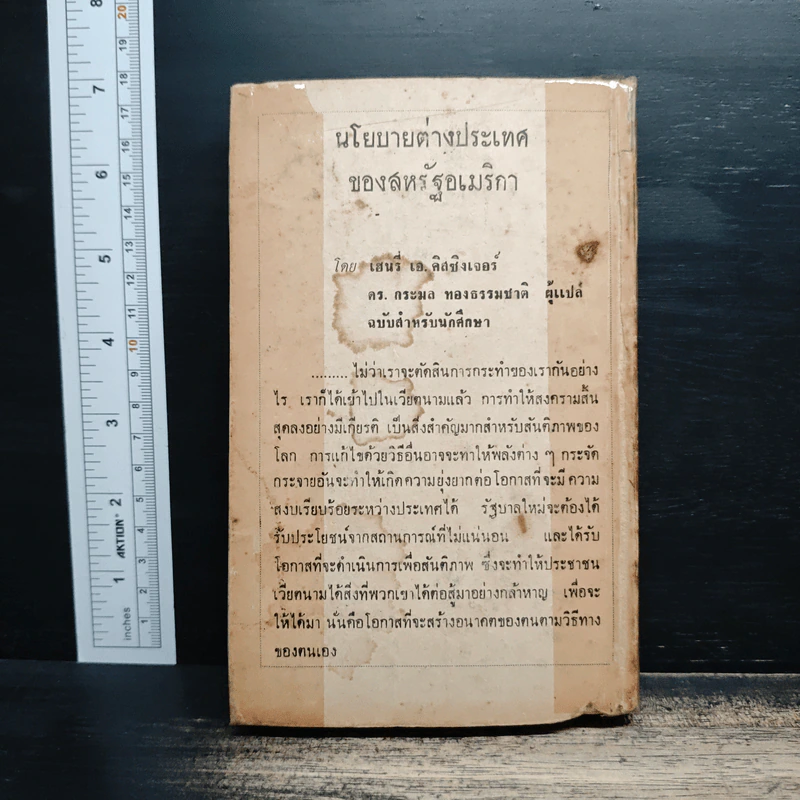 นโยบายต่างประเทศ
ของสหรัฐอเมริกา
โดย เฮนรี่ เอ. คิสซิงเจอร์
ดร. กระมล ทองธรรมชาติ ผู้แปล
ฉบับสำหรับนักศึกษา
......... ไม่ว่าเราจะตัดสินการกระทำของเรากันอย่าง
ไร เราก็ได้เข้าไปในเวียตนามแล้ว การทำให้สงครามสิ้น
สุดลงอย่างมีเกียรติ เป็นสิ่งสำคัญมากสำหรับสันติภาพของ
โลก การแก้ไขด้วยวิธีอื่นอาจจะทำให้พลังต่าง ๆ กระจัด
กระจายอันจะทำให้เกิดความยุ่งยากต่อโอกาสที่จะมีความ
สงบเรียบร้อยระหว่างประเทศได้ รัฐบาลใหม่จะต้องได้
รับประโยชน์จากสถานการณ์ที่ไม่แน่นอน และได้รับ
โอกาสที่จะดำเนินการเพื่อสันติภาพ ซึ่งจะทำให้ประชาชน
เวียตนามได้สิ่งที่พวกเขาได้ต่อสู้มาอย่างกล้าหาญ เพื่อจะ
ให้ได้มา นั่นคือโอกาสที่จะสร้างอนาคตของตนตามวิธีทาง
ของตนเอง
8
7
6
5
4
3
2
1
inches
AKTION
20
19
18
17
16
15
14
13
12
11
10
9
8
7
6
5
4
3
2
1